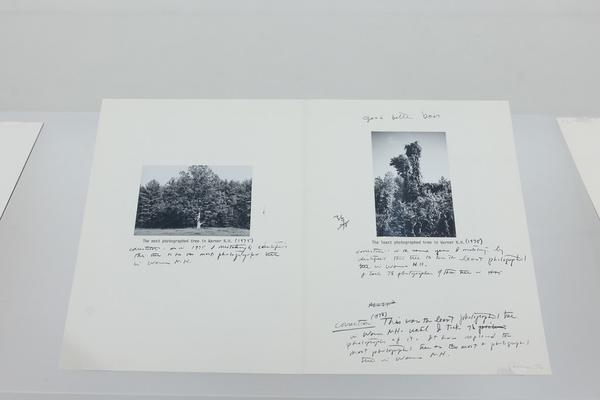 The most photographed tree in Warner N.H. (1975)
correction: in 1975 I mistakenly identified
this tree as the most photographed tree
in Warner N.H.
The least photographed tree in Warner N.H. (1975)
correction: in the same year I mistakenly
identified this tree to be the least photographed
tree in Warner N.H.
I took 78 photographs of this tree in
correction (1978) This was the least photographed tree
in Warner N.H. until I took 78
photographs of it. It has replaced the
most photographed tree as the most photographed
tree in Warner N.H.